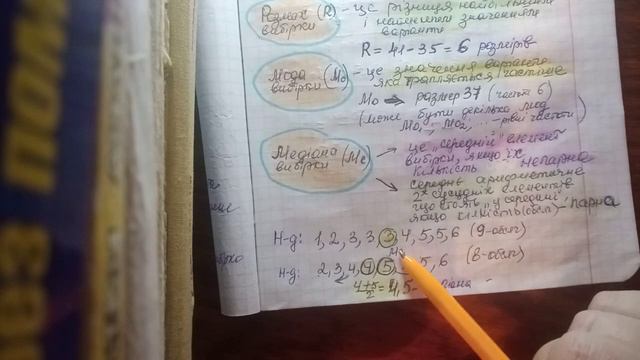 Розмах (R) - це різниця найбільшого
вибірки і найменшого значенням
варианти
R = 41 - 35 = 6 розмірів
Мода (Mo) - це значення варианти
вибірки яка трапляється частіше
Mo → розмір 37 (частота 6)
(може бути декілька мод
Mo₁, Mo₂, ... - рівні частоти)
Медіана (Me) → це "середній" елемент
вибірки вибірки, якщо їх
кількість непарна
середнє арифметичне
2ˣ сусідніх елементів
що стоять "у середині"
якщо кількість (обсяг) - парна
Н-д: 1, 2, 3, 3, 3, 4, 5, 5, 6 (9-обсяг)
Me
Н-д: 2, 3, 4, 4, 5, 5, 6 (8-обсяг)
4+5/2 = 4,5 -